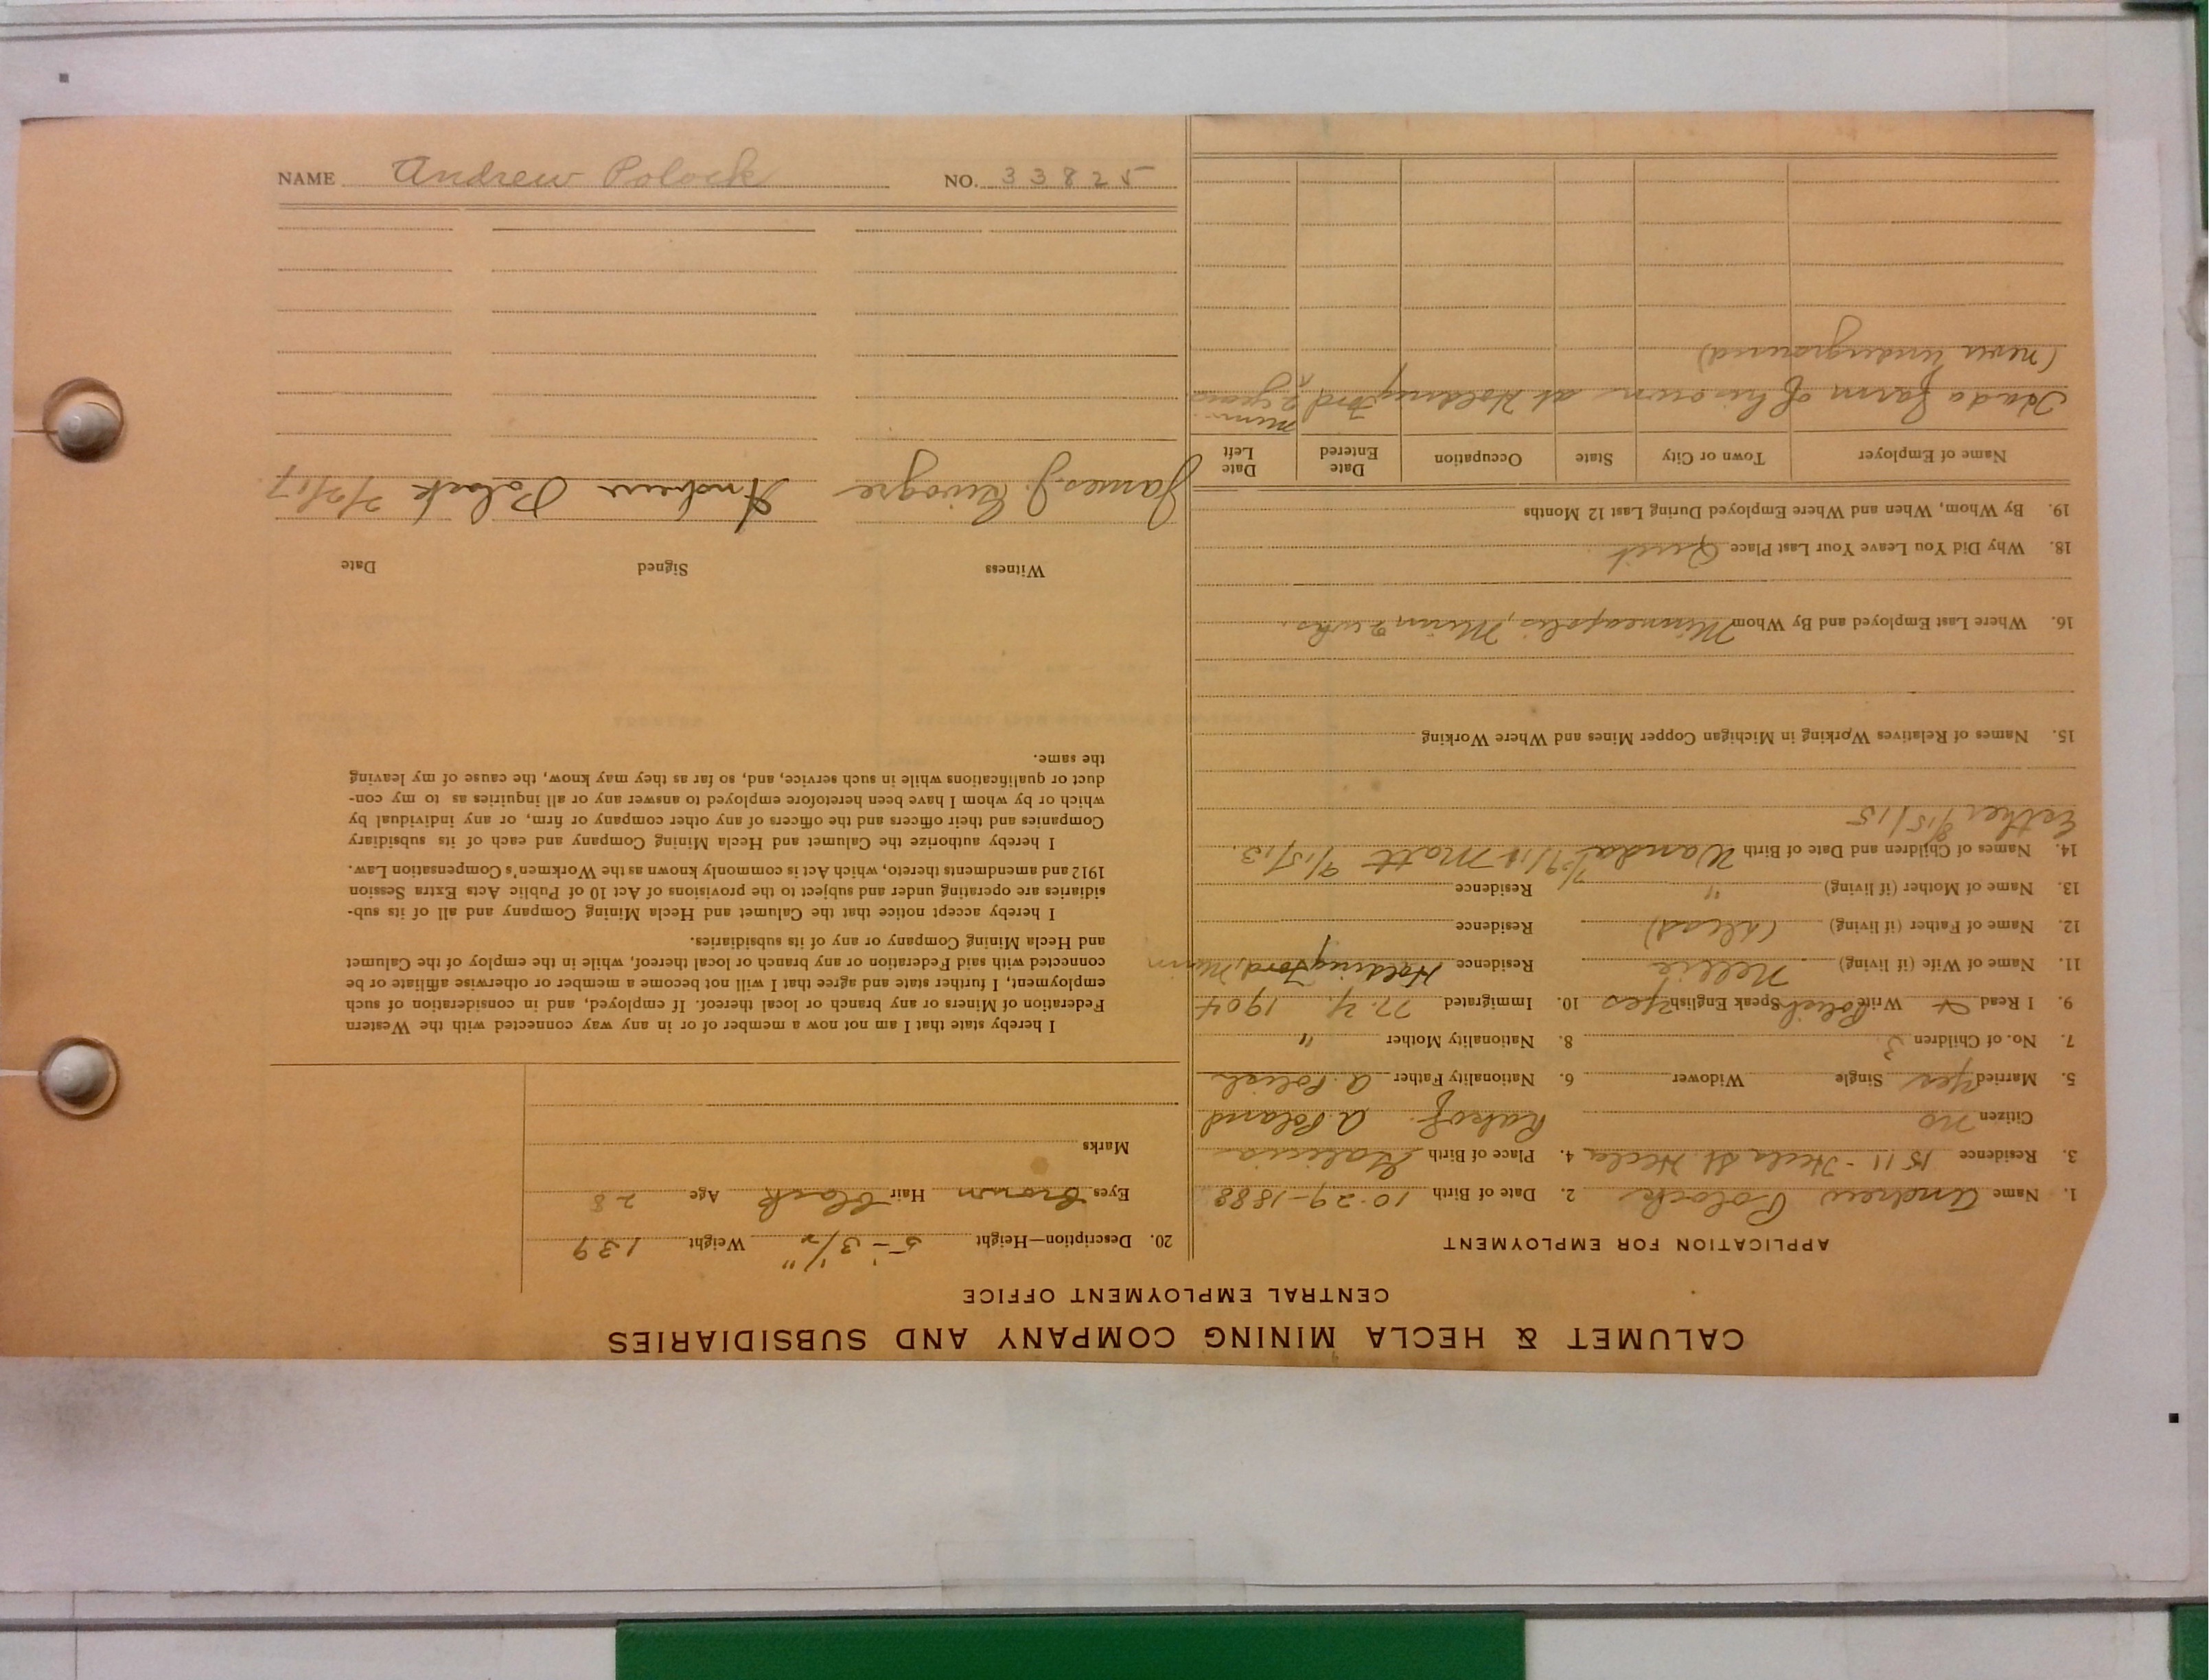 CALUMET & HECLA MINING COMPANY AND SUBSIDIARIES
CENTRAL EMPLOYMENT OFFICE
APPLICATION FOR EMPLOYMENT
1. Name Andrew Polock 2. Date of Birth 10-29-1888
3. Residence 1511 - Hecla St Hecla 4. Place of Birth Galicia
Citizen no A. Poland
5. Married yes Single Widower 6. Nationality Father A. Polish
7. No. of Children 3 8. Nationality Mother "
9. I Read & Write Polish Speak English yes 10. Immigrated N.Y. 1904
11. Name of Wife (if living) Nellie Residence Holdingford, Minn
12. Name of Father (if living) (dead) Residence
13. Name of Mother (if living) " Residence
14. Names of Children and Date of Birth Wanda Matt 9/15/13.
Esther 8/15/15
15. Names of Relatives Working in Michigan Copper Mines and Where Working
16. Where Last Employed and By Whom Minneapolis, Minn, 2 wks.
18. Why Did You Leave Your Last Place Quit
19. By Whom, When and Where Employed During Last 12 Months
Name of Employer Town or City State Occupation Date Entered Date Left
Had a farm of his own at Holdingford Minn. 2 years
(never underground)
20. Description—Height 5'-3 1/2" Weight 139
Eyes brown Hair black Age 28
Marks
I hereby state that I am not now a member of or in any way connected with the Western
Federation of Miners or any branch or local thereof. If employed, and in consideration of such
employment, I further state and agree that I will not become a member or otherwise affiliate or be
connected with said Federation or any branch or local thereof, while in the employ of the Calumet
and Hecla Mining Company or any of its subsidiaries.
I hereby accept notice that the Calumet and Hecla Mining Company and all of its sub-
sidiaries are operating under and subject to the provisions of Act 10 of Public Acts Extra Session
1912 and amendments thereto, which Act is commonly known as the Workmen's Compensation Law.
I hereby authorize the Calumet and Hecla Mining Company and each of its subsidiary
Companies and their officers and the officers of any other company or firm, or any individual by
which or by whom I have been heretofore employed to answer any or all inquiries as to my con-
duct or qualifications while in such service, and, so far as they may know, the cause of my leaving
the same.
Witness Signed Date
James J. Andrew Polock 7/2/17
NAME Andrew Polock NO. 33825